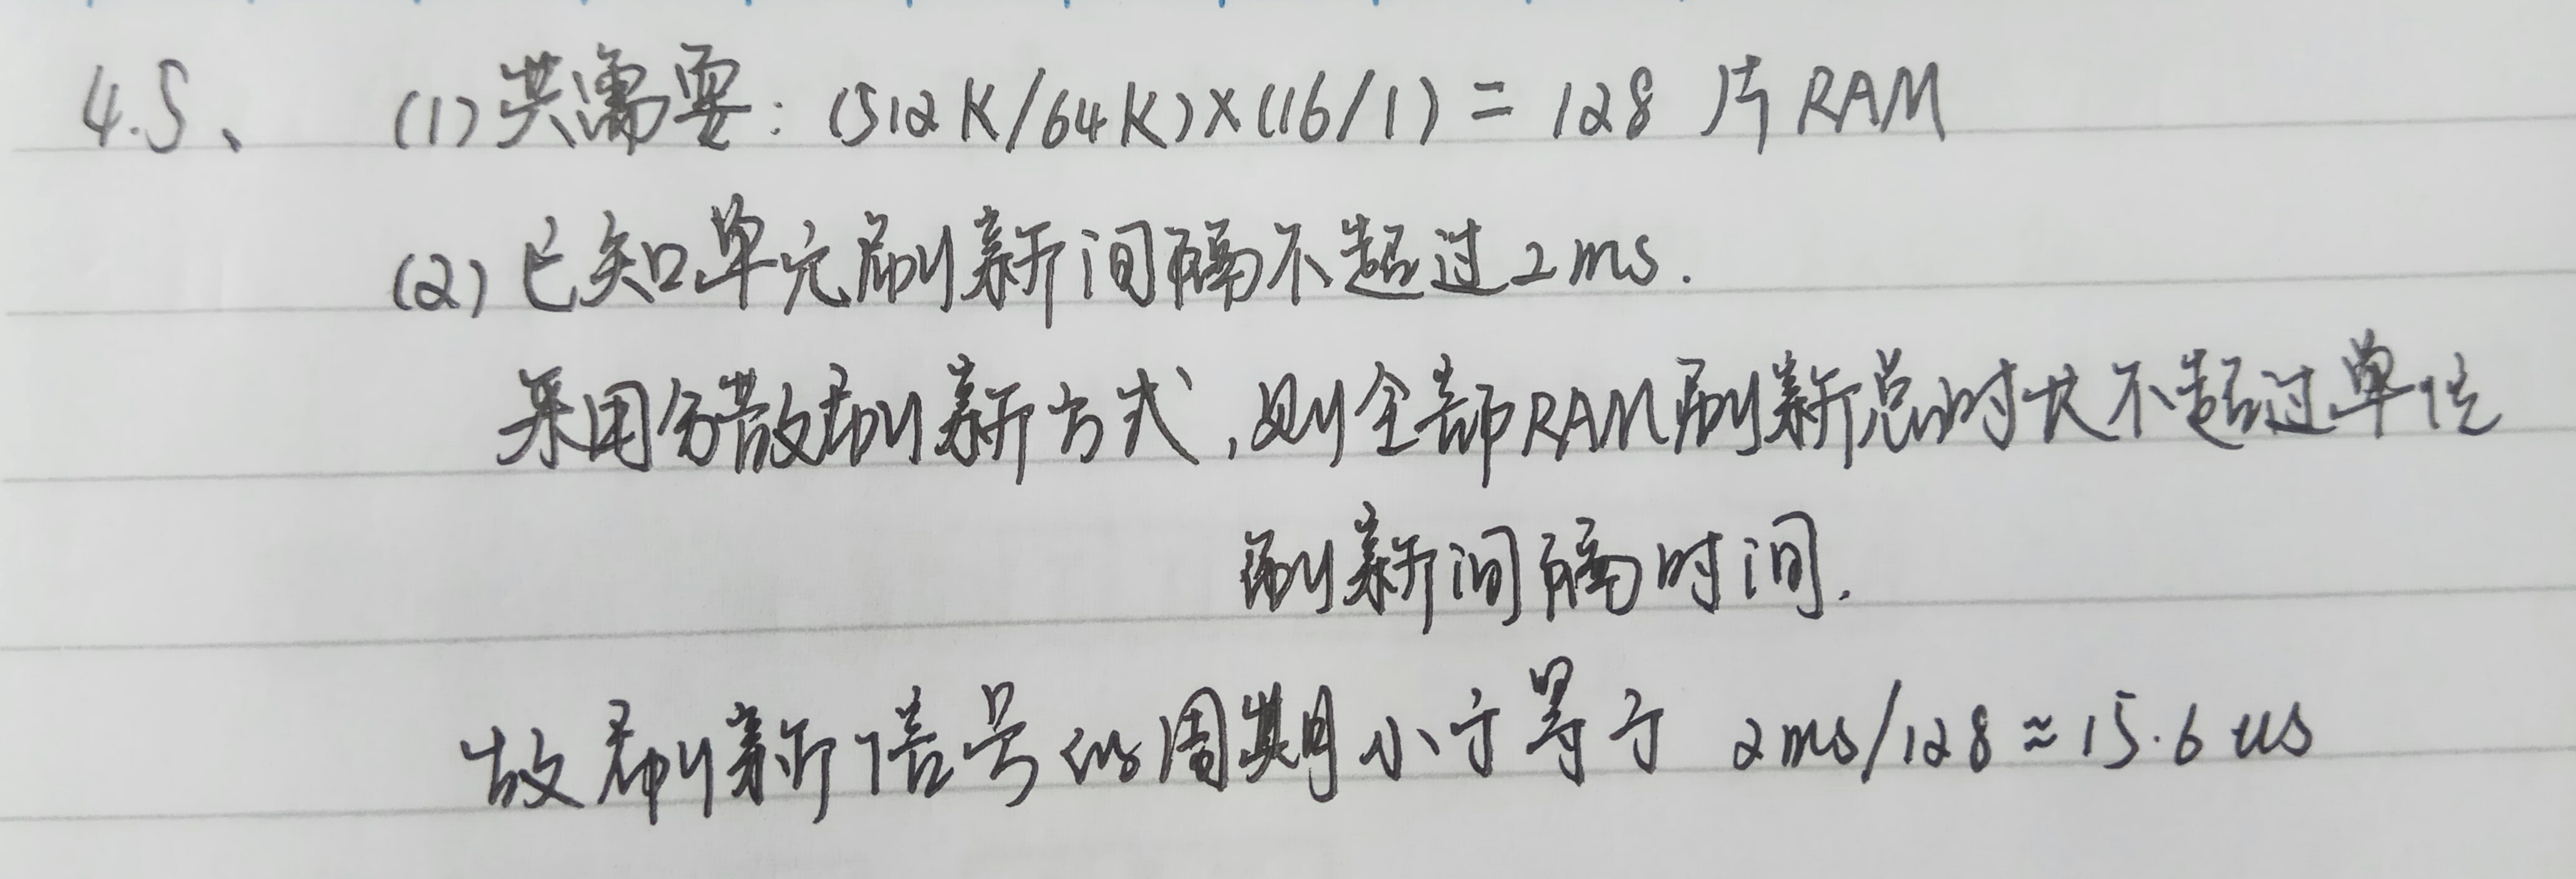 4.5、 (1)共需要：(512K/64K)×(16/1) = 128 片 RAM
(2) 已知单元刷新间隔不超过2ms.
采用分散刷新方式，则全部RAM刷新总时长不超过单位
刷新间隔时间.
故刷新信号的周期小于等于 2ms/128≈15.6us